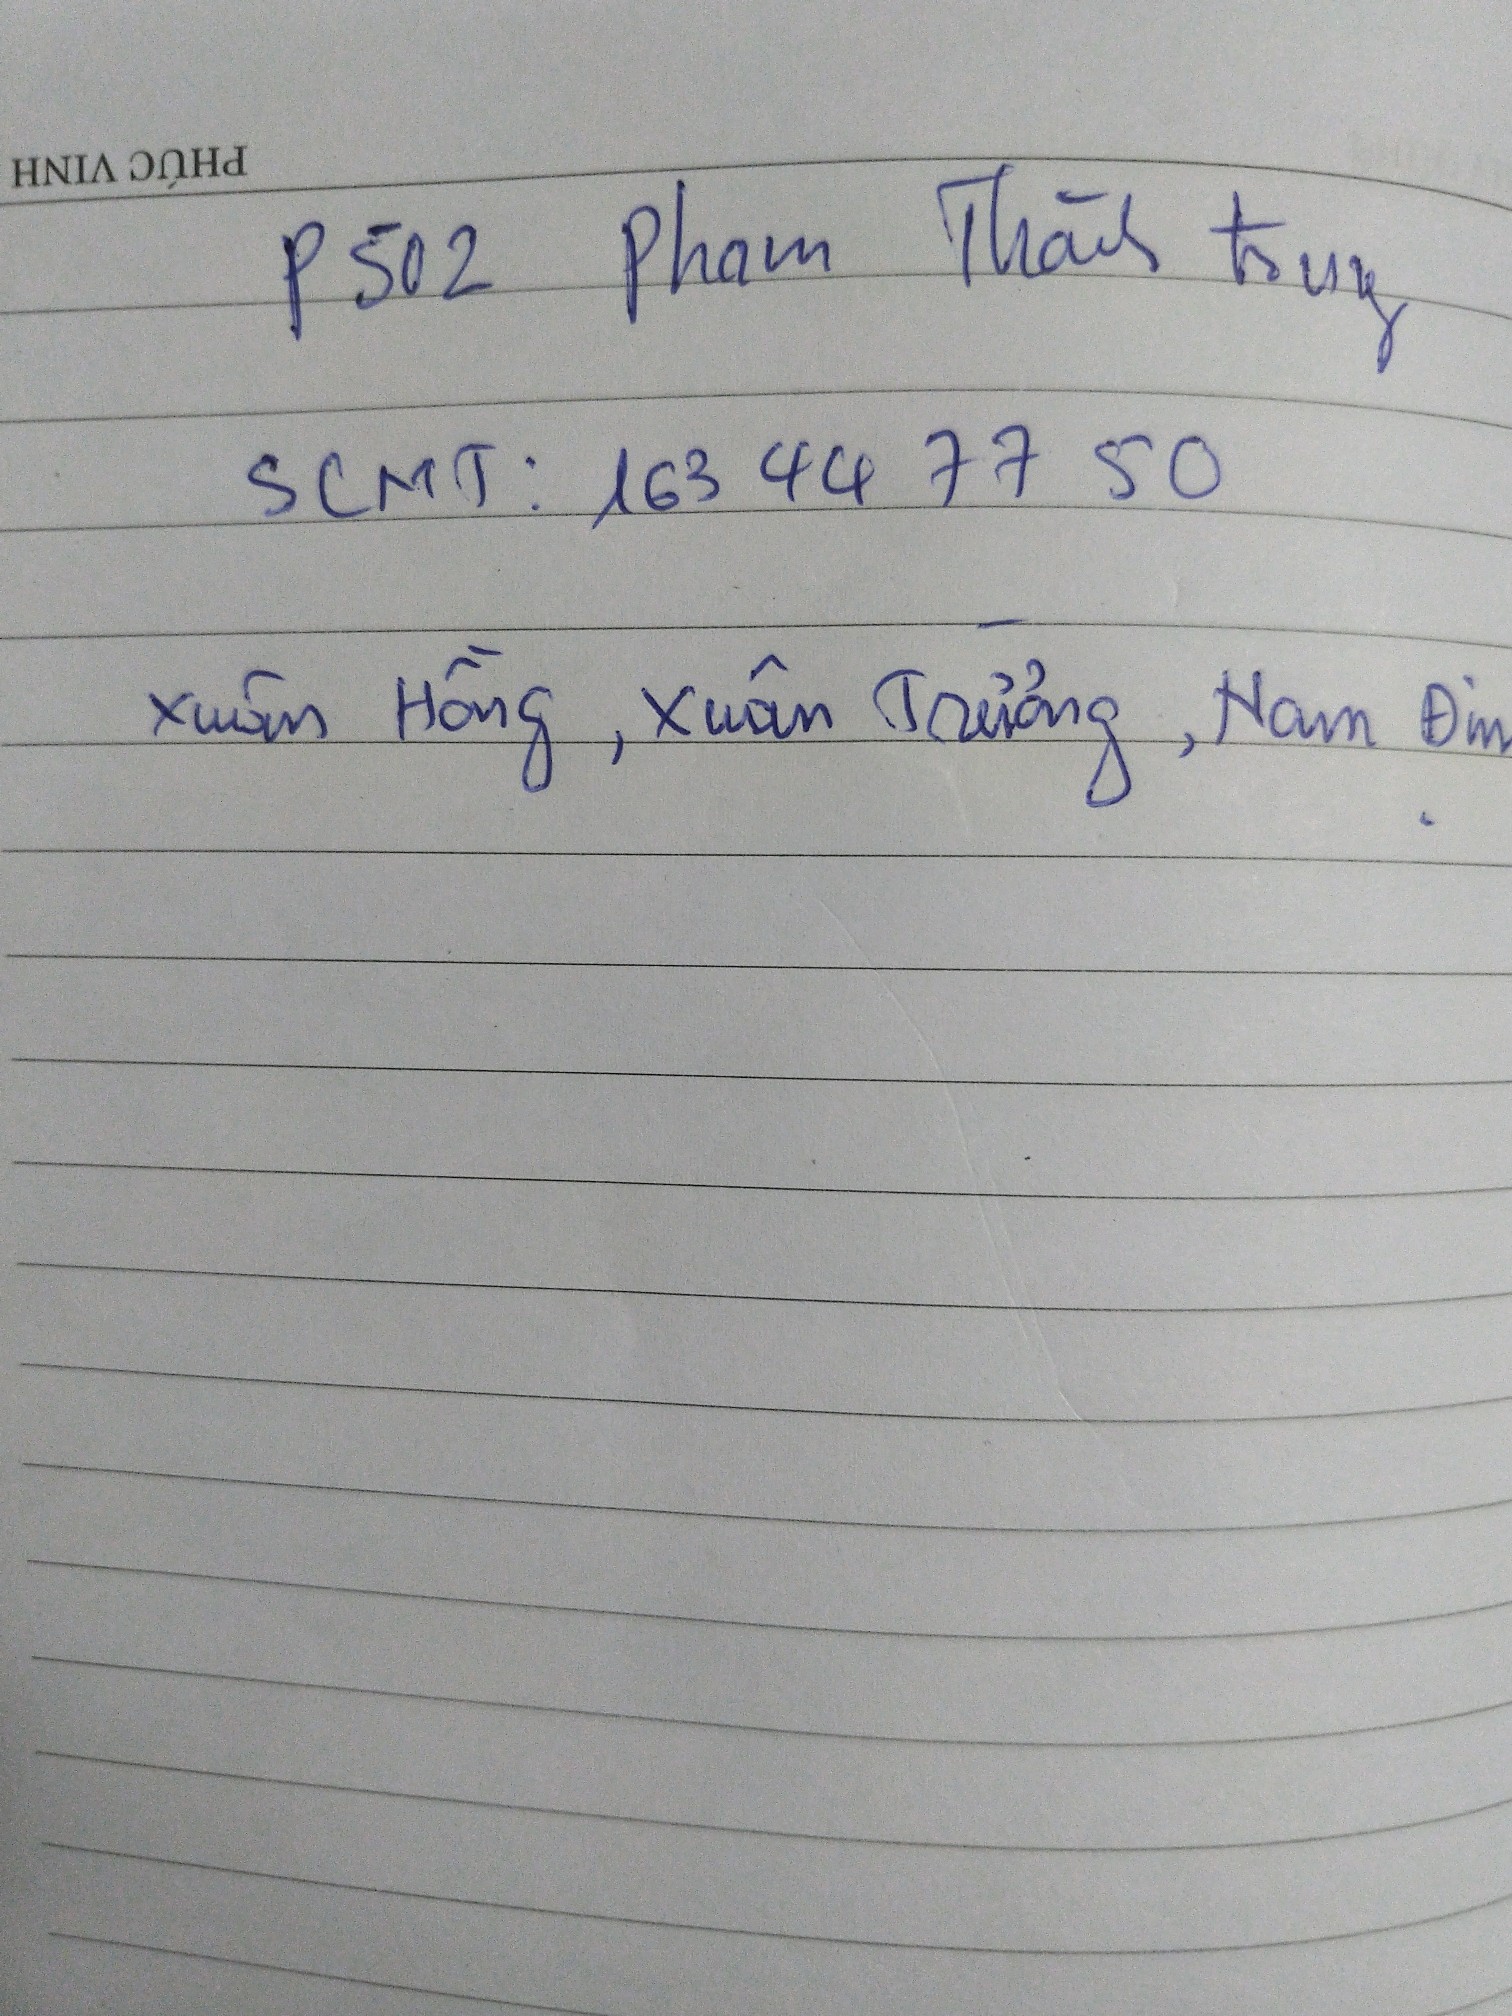 PHÚC VINH
P502 Pham Thành trung
SCMT: 163 44 77 50
Xuân Hồng, Xuân Trường, Nam Đìn